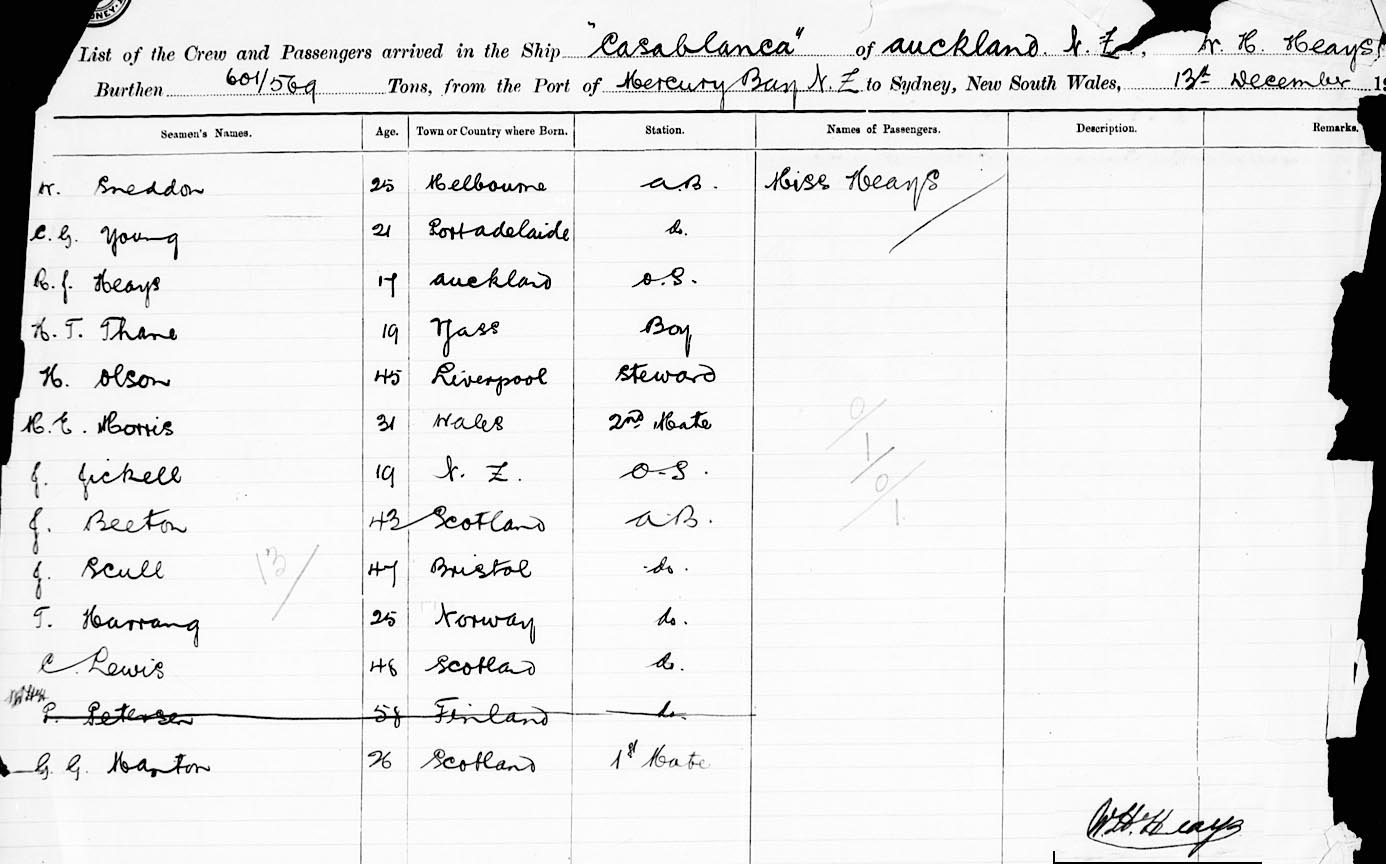 List of the Crew and Passengers arrived in the Ship "Casablanca" of Auckland. N. Z., W. H. Heays
Burthen 601/569 Tons, from the Port of Mercury Bay N. Z to Sydney, New South Wales, 13th December 19
Seamen's Names. Age. Town or Country where Born. Station. Names of Passengers. Description. Remarks.
W. Sneddon 25 Melbourne A B. Miss Heays
C. G. Young 21 Port Adelaide do.
R. J. Heays 17 Auckland O.S.
H. T. Thane 19 Yass Boy
H. Olson 45 Liverpool Steward
M. E. Morris 31 Wales 2nd Mate
J. Jickell 19 N. Z. O-S.
J. Beeton 43 Scotland A B.
J. Scull 47 Bristol do.
T. Harrang 25 Norway do.
C Lewis 46 Scotland do.
P. Petersen 58 Finland do.
G. G. Manton 26 Scotland 1st Mate
13
0
1
0
1
W. H. Heays